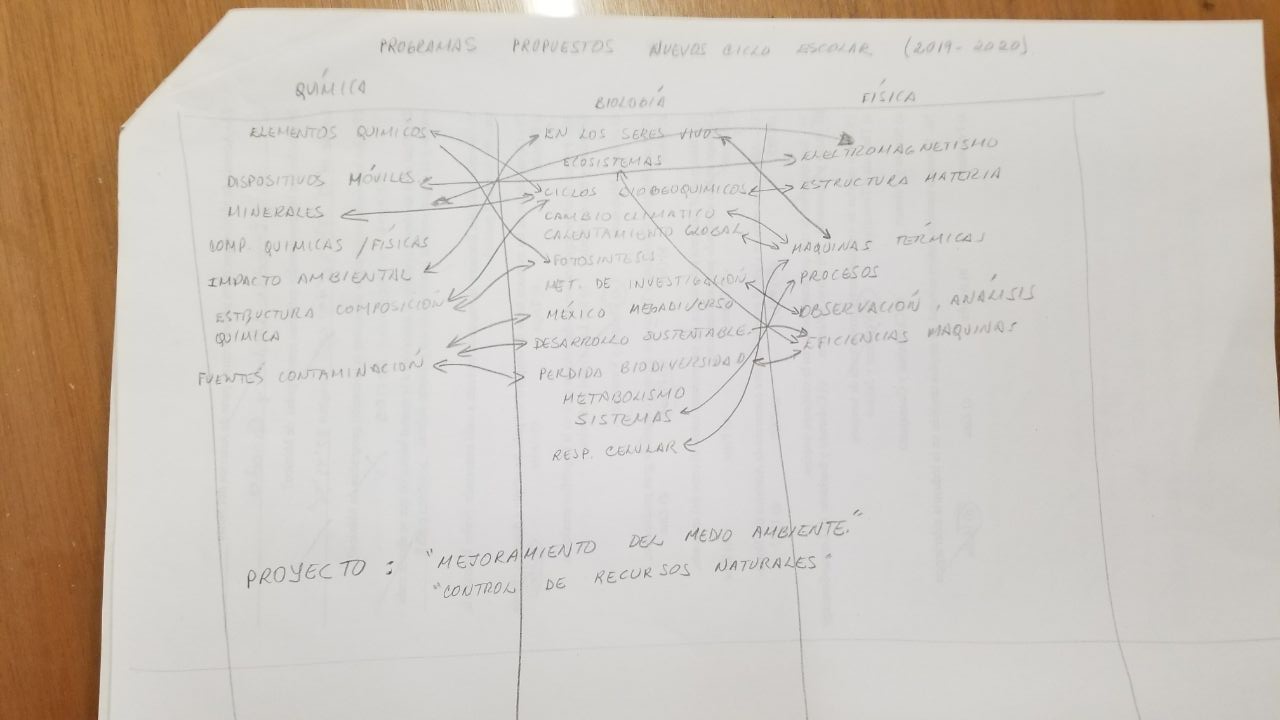 PROGRAMAS PROPUESTOS NUEVOS CICLO ESCOLAR (2019-2020)
QUÍMICA
ELEMENTOS QUIMICOS
DISPOSITIVOS MÓVILES
MINERALES
COMP. QUIMICAS / FÍSICAS
IMPACTO AMBIENTAL
ESTRUCTURA COMPOSICIÓN
QUÍMICA
FUENTES CONTAMINACIÓN
BIOLOGÍA
EN LOS SERES VIVOS
ECOSISTEMAS
CICLOS BIOGEOQUIMICOS
CAMBIO CLIMATICO
CALENTAMIENTO GLOBAL
FOTOSINTESIS
MET. DE INVESTIGACIÓN
MÉXICO MEGADIVERSO
DESARROLLO SUSTENTABLE
PERDIDA BIODIVERSIDAD
METABOLISMO
SISTEMAS
RESP. CELULAR
FÍSICA
ELECTROMAGNETISMO
ESTRUCTURA MATERIA
MAQUINAS TÉRMICAS
PROCESOS
OBSERVACIÓN, ANÁLISIS
EFICIENCIAS MAQUINAS
PROYECTO : "MEJORAMIENTO DEL MEDIO AMBIENTE."
"CONTROL DE RECURSOS NATURALES"